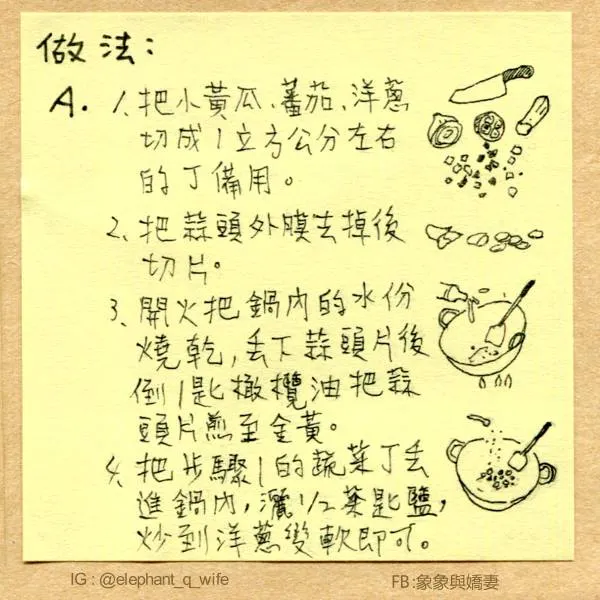 做法：
A. 1.把小黃瓜、蕃茄、洋蔥
切成1立方公分左右
的丁備用。
2.把蒜頭外膜去掉後
切片。
3.開火把鍋內的水份
燒乾，丟下蒜頭片後
倒1匙橄欖油把蒜
頭片煎至金黃。
4.把步驟1的蔬菜丁丟
進鍋內，灑1/2茶匙鹽，
炒到洋蔥變軟即可。
IG : @elephant_q_wife
FB:象象與嬌妻